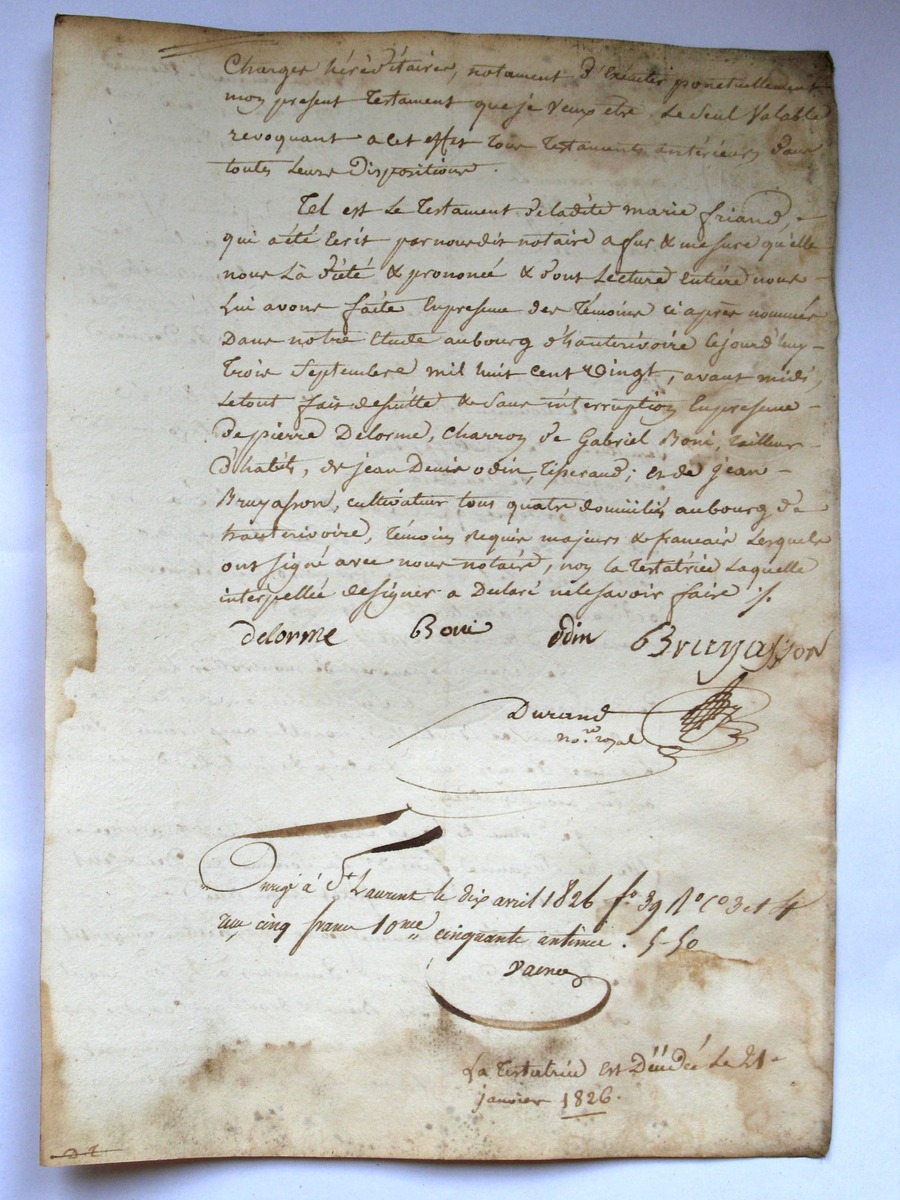 Charges héréditaires, notament d'Exécuter ponctuellement
mon present Testament que je Veux etre Le Seul Valable
revoquant a cet effet Tous Testaments antérieurs dans
toutes Leurs Dispositions.
Tel est Le Testament deladite marie friand,
qui a été Ecrit par nousdit notaire a fur & mesure qu'elle
nous Là dicté & prononcé & dont Lecture Entiére nous
Lui avons faite Enpresence des Témoins ci après nommés
Dans notre Etude aubourg d'hauterivoire Cejourd'huy
Trois Septembre mil huit cent Vingt, avant midi,
Letout fait desuitte & Sans interruption Enpresence
depierre Delorme, Charron de Gabriel Boni, Tailleur
d'habits, de jean Denis odin, Tisserand; et de jean
Bruyasson, cultivateur tous quatre domiciliés aubourg de
hauterivoire, Témoins Requis majeurs & francais Lesquels
ont signé avec nous notaire, non la Testatrice Laquelle
interpellée designer a Declaré nelesavoir faire ./.
delorme Boni odin Bruyasson
Durand
no.re royal
Enregé à St Laurent le dix avril 1826 fo. 39 Ro Co 3 et 4
cinq francs 10me cinquante centimes. 5-50
La Testatrice est Décédée Le 21
janvier 1826.